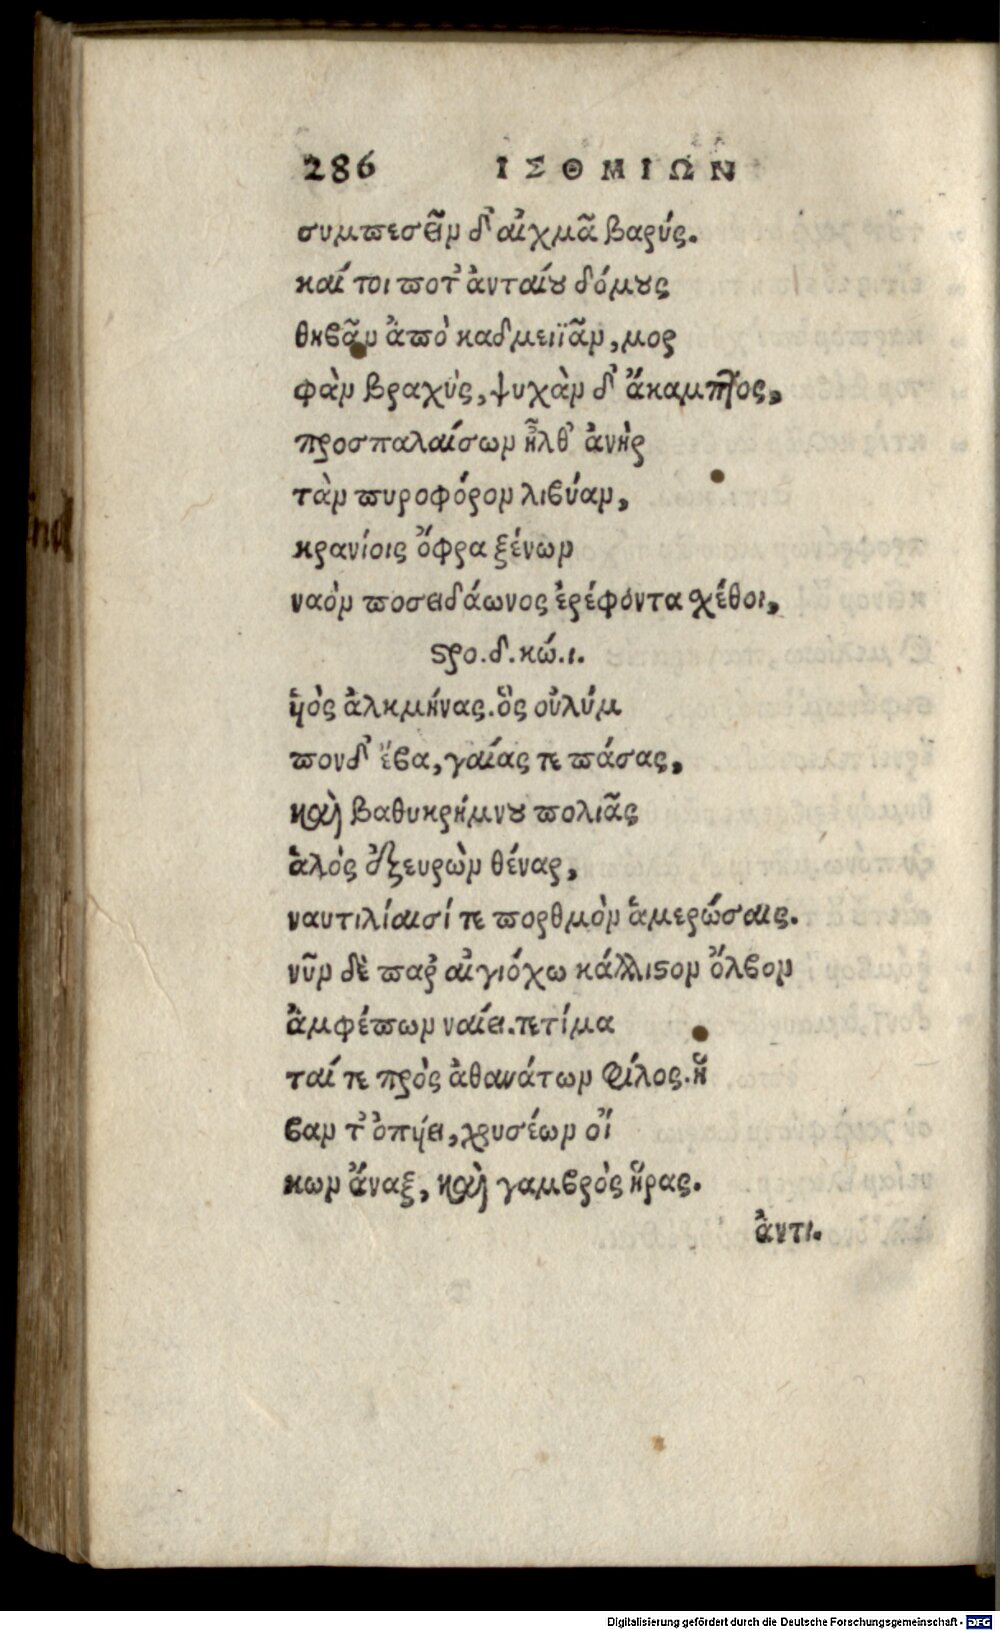 286 ΙΣΘΜΙΩΝ
συμπεσεῖν δ' αἰχμᾷ βαρύς.
καί τοι ποτ' ἀνταίου δόμους
θηβᾶν ἀπὸ καδμειϊᾶν, μορ
φὰν βραχὺς, ψυχὰν δ' ἄκαμπτος,
προσπαλαίσων ἦλθ' ἀνὴρ
τὰν πυροφόρον λιβύαν,
κρανίοις ὄφρα ξένων
ναὸν ποσειδάωνος ἐρέφοντα σχέθοι,
στρο.δ.κώ.ι.
ὑὸς ἀλκμήνας. ὃς οὐλύμ
πονδ' ἔβα, γαίας τε πάσας,
καὶ βαθυκρήμνου πολιᾶς
ἁλὸς ἐξευρὼν θέναρ,
ναυτιλίαισί τε πορθμὸν ἁμερώσαις.
νῦν δὲ παρ' αἰγιόχω κάλλιστον ὄλβον
ἀμφέπων ναίει. τετίμα
ταί τε πρὸς ἀθανάτων φίλος. ἥ
βαν τ' ὀπύει, χρυσέων οἴ
κων ἄναξ, καὶ γαμβρὸς ἥρας.
ἀντι.
Digitalisierung gefördert durch die Deutsche Forschungsgemeinschaft - DFG